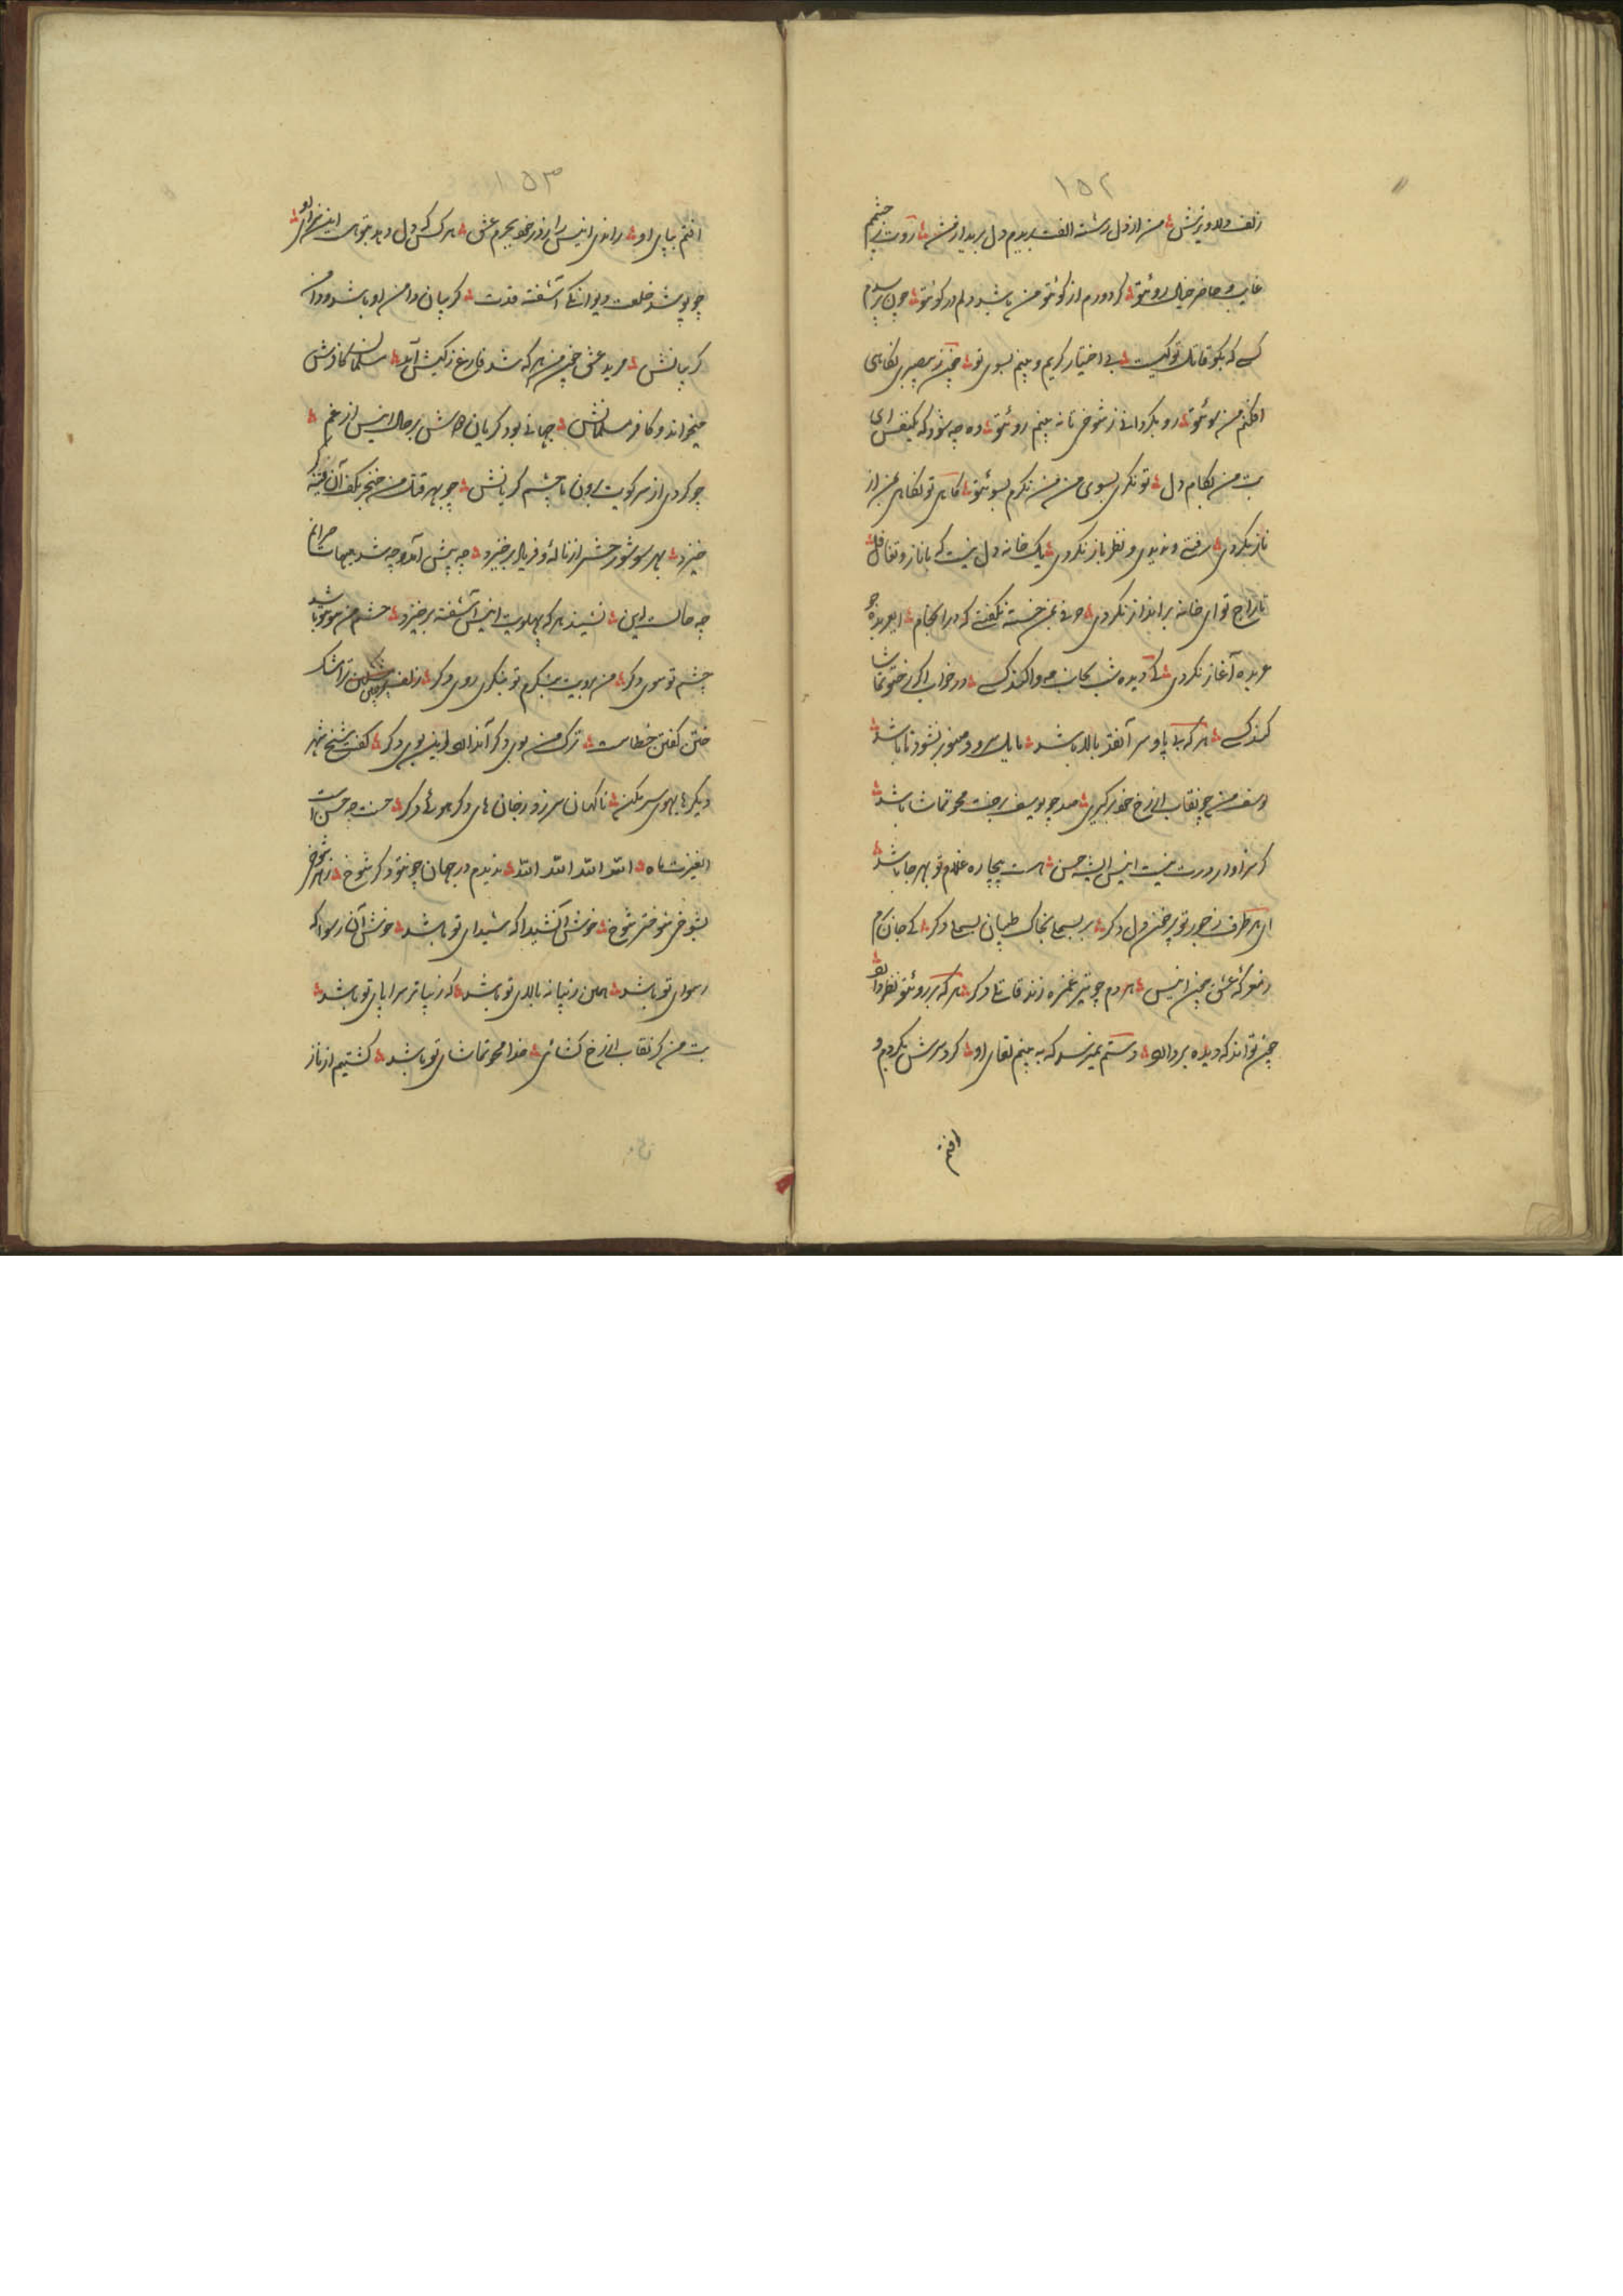 ۱۵۲
زلف دلاویزش من از دل رشته الفت بریدم دل برید از من رویت ز چشم
غایب و حاضر خیال روئتو گر دورم از کوئتو من باشد دلم در کوئتو چون پرسدم
کسی که بگو قاتل تو کیست بی اختیار گریم و بینم بسوی تو چون ز بیصبری نگاهی
افکنم من سوئتو رو بگردانی ز شوخی تا نه بینم روئتو وه چه شود که یکنفس ای
بت من بکام دل تو نگری بسوی من من نگرم بسوئتو گاهی تو نگاهی بمن از
ناز نکردی رفتی و ندیدی و نظر باز نکردی یک خانه دل نیست که با ناز و تغافل
تاراج تو ای خانه برانداز نکردی حرفی بمن خسته نگفتی که در انجام ای عربده جو
عربده آغاز نکردی کی دیده شب بجانب مه وا کند کسی در خواب اگر رختو تماشا
کند کسی هر که بی پا و سر آنقد بالا باشد مایل سرو و صنوبر نشود تا باشد
یوسف من چو نقاب از رخ خود برگیری صد چو یوسف برخت محو تماشا باشد
گر سزاوار درت نیست انیس ای شه حسن هست بیچاره غلام تو بهر جا باشد
ای هر طرف ز جور تو پر خون دل دگر هر بسملی بخاک طپان بسملی دگر کی جان برم
ز معرکه عشق چون انیس هر دم چو تیر غمزه زند قاتلی دگر هر که بر روئتو نظر دارد
چون تواند که دیده بردارد دستم نمیرسد که به بینم لقای او گرد سرش بگردم و
افتم
۱۵۳
افتم بپای او راندی انیس را ز در خود بجرم عشق هر کس که دل دهد بتو هست این سزای او
چو پوشد خلعت دیوانگی آشفته قدت گریبان دامن او باشد و دامن
گریبانش مرید عشق چون من هر که شد فارغ ز کیش آمد مسلمان کافرش
میخواند و کافر مسلمانش جهانی بود گریان دوش بر حال انیس از غم
چو کردی از سر کویت برون با چشم گریانش چو بهر قتل من خنجر بکف آن فتنه گر
خیزد بهر سو شور حشر از ناله و فریاد برخیزد چه پیش آمد چه شد بیهات حیرانم
چه حالست این نشیند هر که پهلویت انیس آشفته برخیزد چشم من سوئتو باشد
چشم تو سوی دگر من برویت بنگرم تو بنگری روی دگر زلف مشکین ترا مشک
ختن گفتن خطاست ترک من بوی دگر آن دارد این بوی دگر گفت شیخ شهر
دیگر های هوی سر مکن ناگهان سر زد ز جان های دگر هوئی دگر حسنت چه حسن است
ای غیرت ماه الله الله الله الله ندیدم در جهان چونتو دگر شوخ ز هر شوخی
بشوخی شوختر شوخ خوش آن شیدا که شیدای تو باشد خوش آن رسوا که
رسوای تو باشد همین زیبا نه بالای تو باشد که زیباتر سراپای تو باشد
بت من گر نقاب از رخ گشائی خدا محو تماشای تو باشد کشتیم از ناز